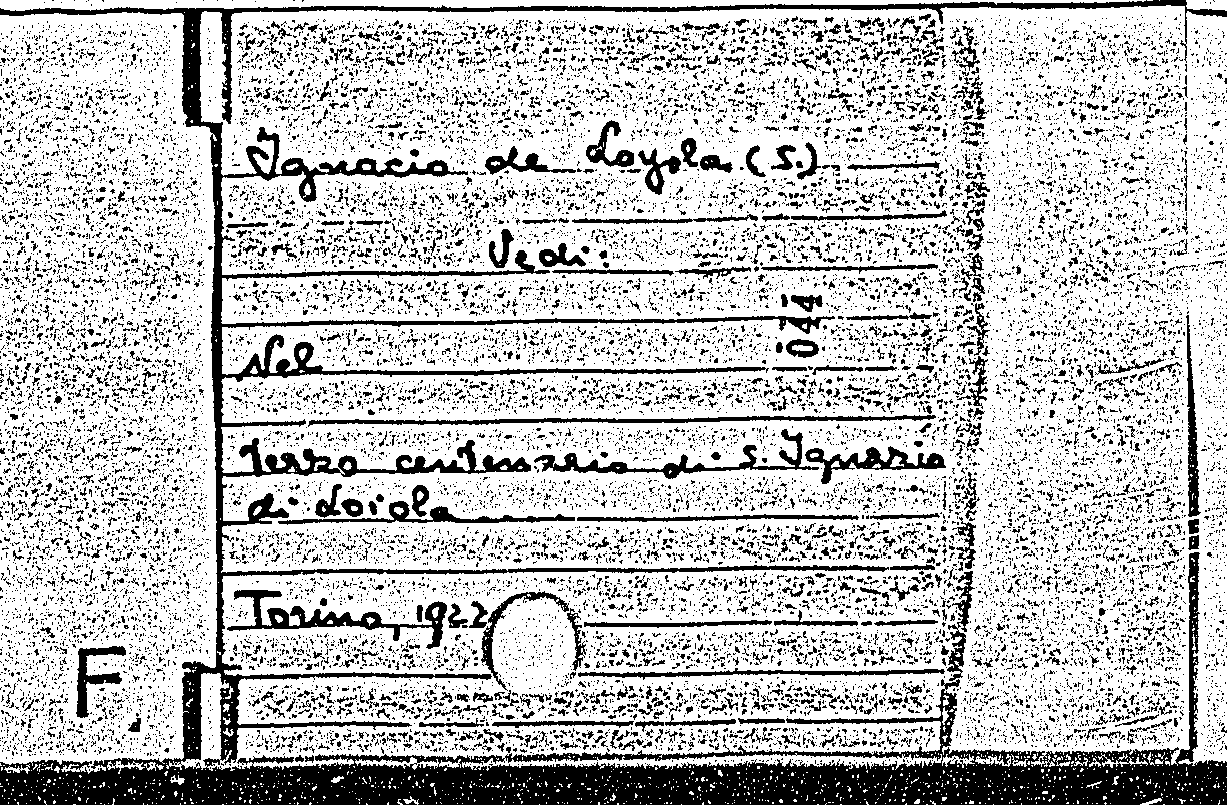 Ignacio de Loyola (S.)
Vedi:
044
Nel
terzo centenario di S. Ignazio
di Loiola
Torino, 1922
F.